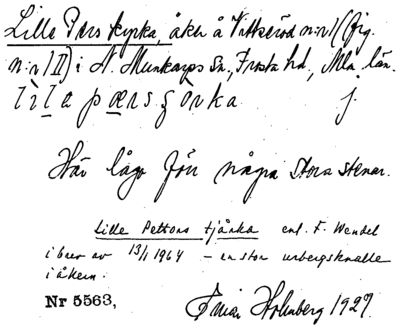 Lille Pers kyrka, åker å Vittseröd n:r 1 (fig.
n:r II) i N. Munkarps sn, Frosta hd, Mlm. län.
lìlə pærs ɟörka j.
Här lågo förr några stora stenar.
Lille Pettons tjårka enl. F. Wendel
i brev av 13/1 1964 – en stor urbergsknalle
i åkern.
Nr 5563, Einar Holmberg 1927.